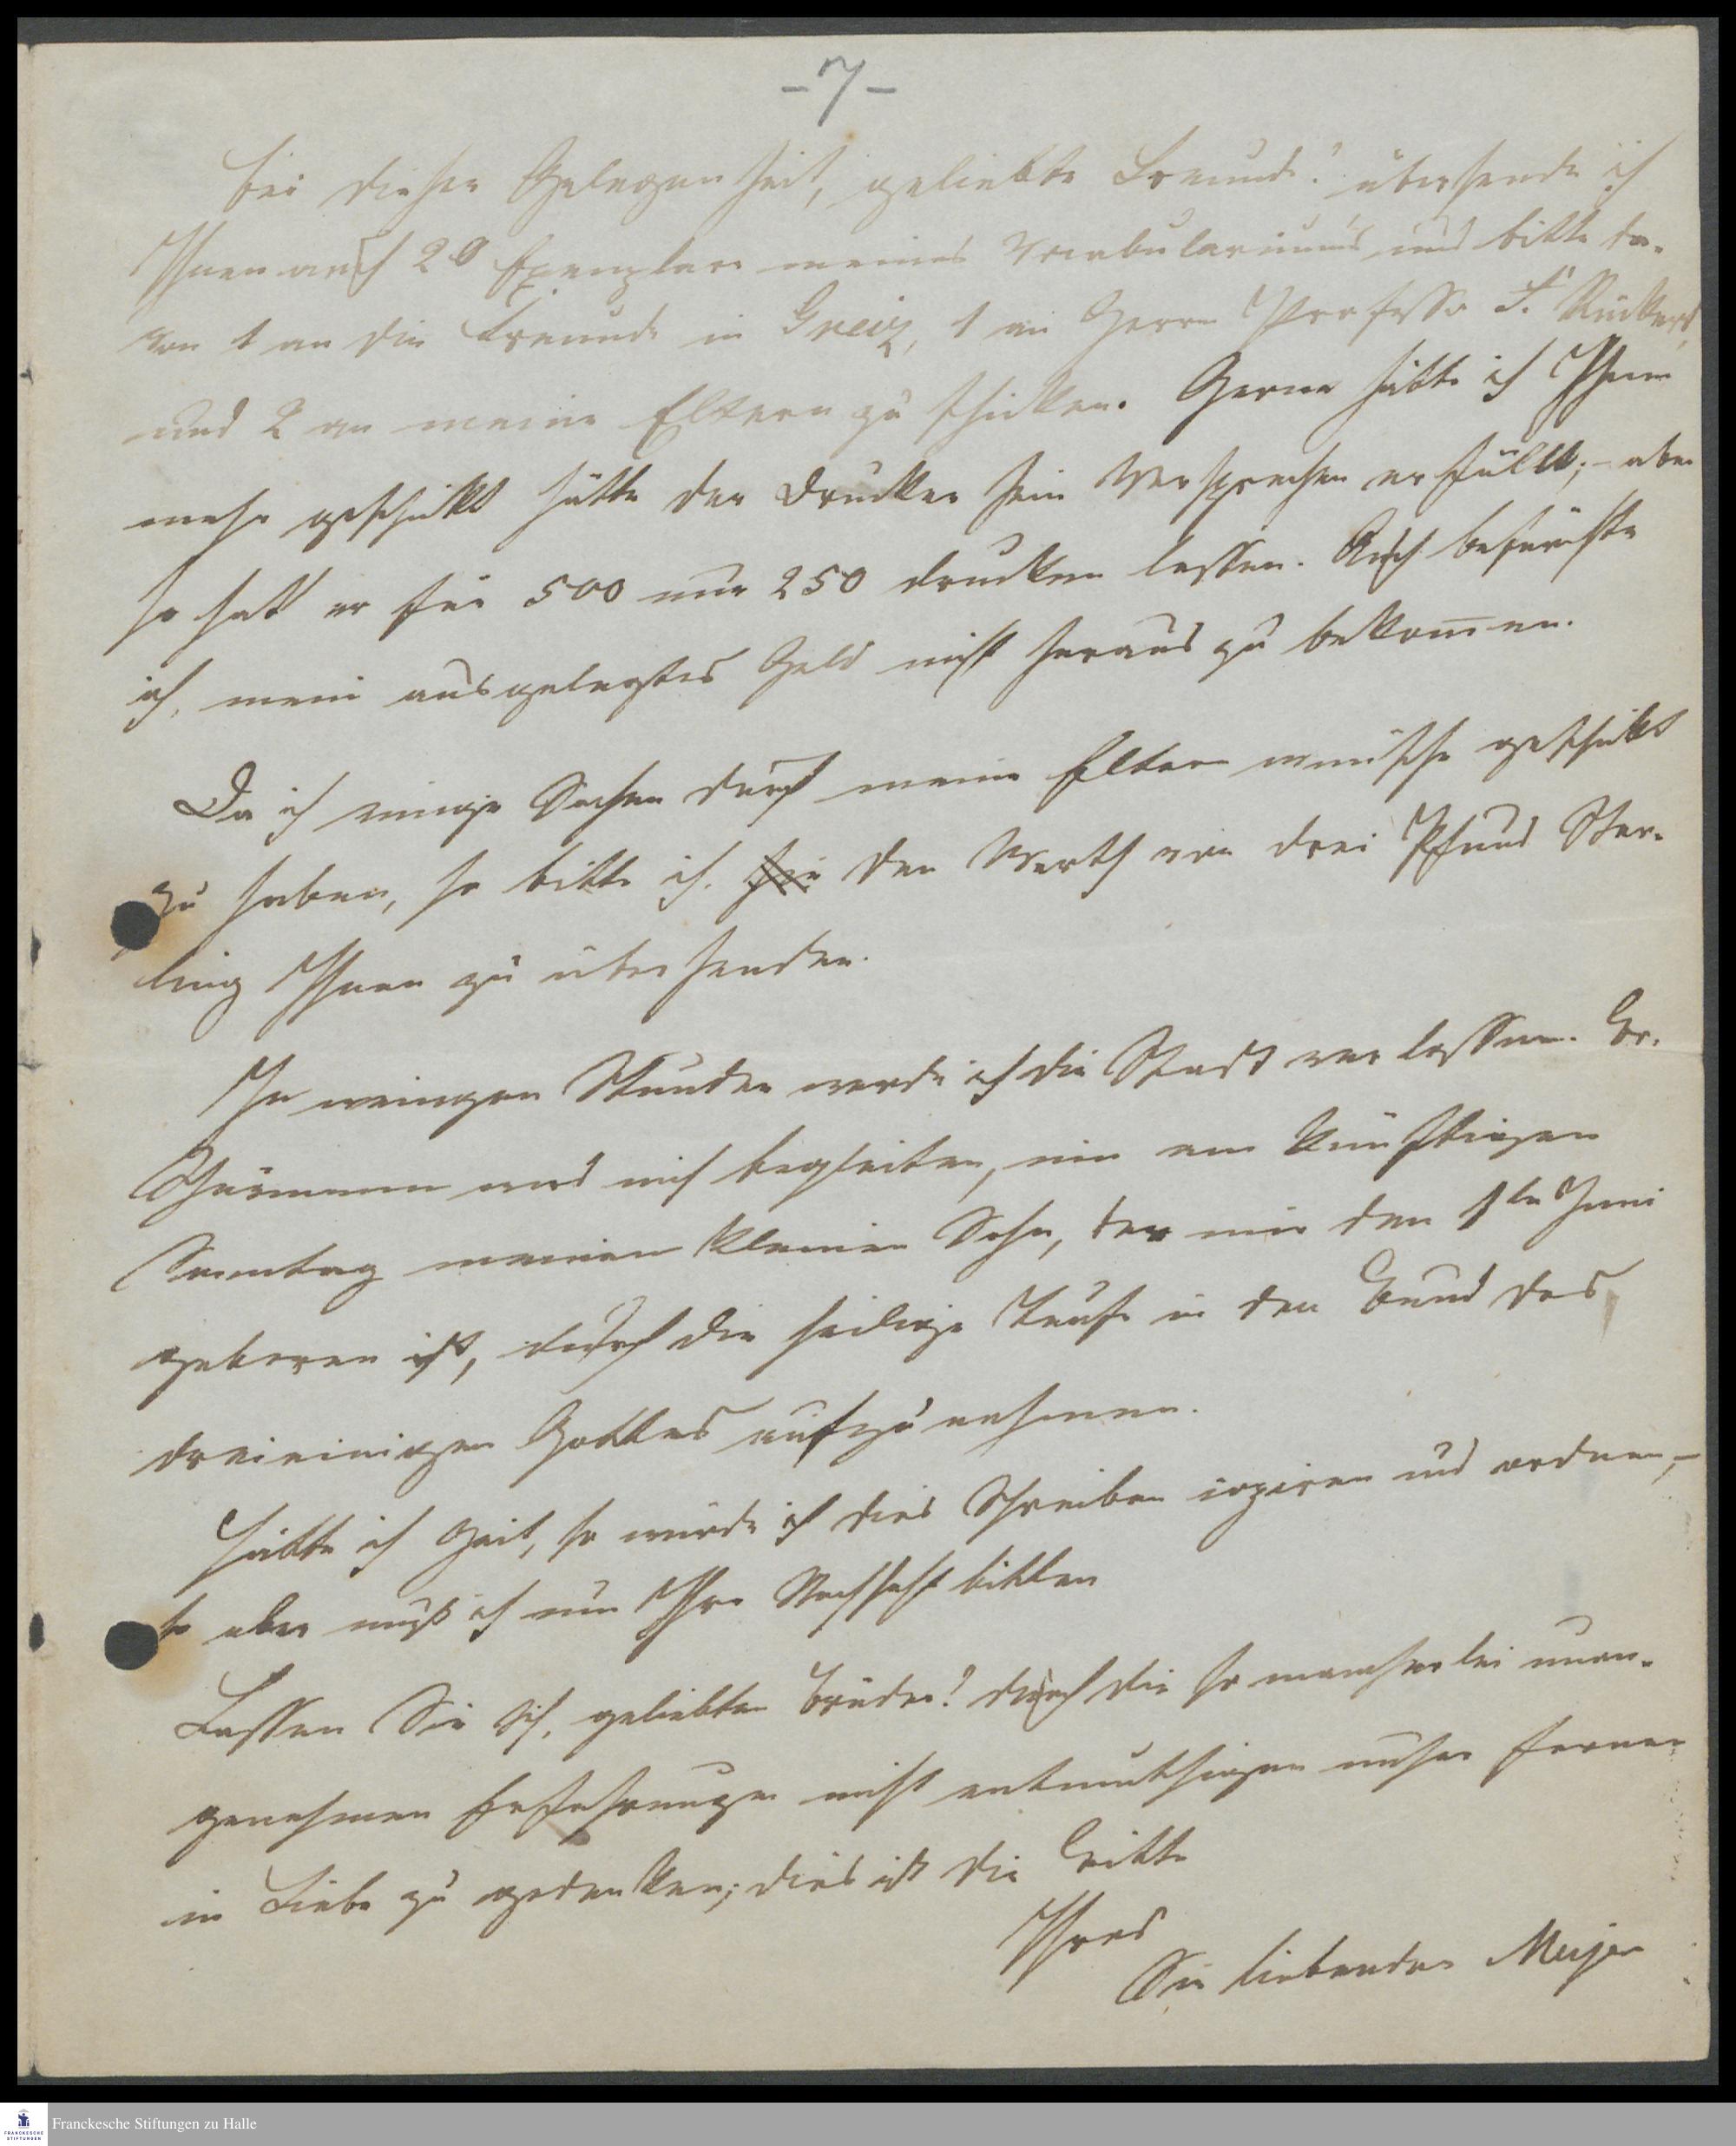 - 7 -
Bei dieser Gelegenheit, geliebte Freunde! übersende ich
Ihnen auch 20 Exemplare meines Vocabulariums, und bitte da-
von 1 an die Freunde in Greiz, 1 an Herrn Professor F. Rückert,
und 2 an meine Eltern zu schicken. Gerne hätte ich Ihnen
mehr geschickt hätte der Drucker sein Versprechen erfüllt; – aber
so hat er für 500 nur 250 drucken lassen. Auch befürchte
ich, mein ausgelegtes Geld nicht heraus zu bekommen.
Da ich einige Sachen durch meine Eltern wünsche geschickt
zu haben, so bitte ich den Werth von drei Pfund Ster-
ling Ihnen zu übersenden.
In wenigen Stunden werde ich die Stadt verlassen. Br.
wird mich begleiten, um am künftigen
Sonntag meinen kleinen Sohn, der mir den 1ten Juni
geboren ist, durch die heilige Taufe in den Bund des
dreieinigen Gottes aufzunehmen.
Hätte ich Zeit, so würde ich dies Schreiben copiren und ordnen, –
so aber muß ich um Ihre Nachsicht bitten
Lassen Sie sich, geliebten Brüder! durch die so mancherlei unan-
genehmen Erfahrungen nicht entmuthigen unser ferner
in Liebe zu gedenken; dies ist die Bitte
Ihres
Sie liebenden Meyer
Franckesche Stiftungen zu Halle
FRANCKESCHE
STIFTUNGEN